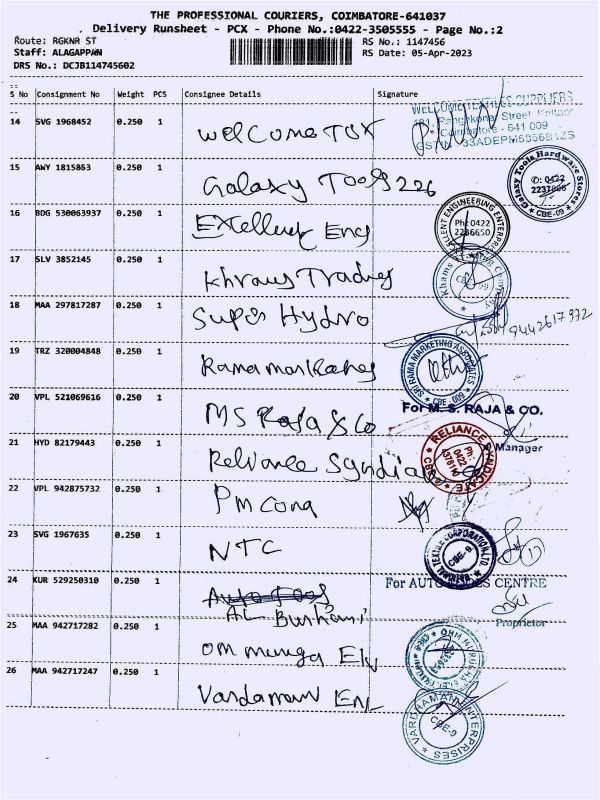 THE PROFESSIONAL COURIERS, COIMBATORE-641037
Delivery Runsheet - PCX - Phone No.:0422-3505555 - Page No.:2
Route: RGKNR ST
RS No.: 1147456
Staff: ALAGAPPAN
RS Date: 05-Apr-2023
DRS No.: DCJB114745602
S No Consignment No Weight PCS Consignee Details Signature
14 SVG 1968452 0.250 1 Welcome Tex
WELCOME TEXTILES SUPPLIERS
Street
Coimbatore - 641 009
15 AWY 1815853 0.250 1 Galaxy Tools 226
Galaxy Tools Hardware Stores
CBE-09
16 BDG 530063937 0.250 1 Excellent Eng
EXCELLENT ENGINEERING ENTERPRISES
Ph: 0422
2236650
17 SLV 3852145 0.250 1 Khrams Trading
Khams Company
CBE-09
18 MAA 297817287 0.250 1 Super Hydro
9442617972
19 TRZ 320004848 0.250 1 Rama markates
SRI RAMA MARKETING ASSOCIATES
CBE - 009
20 VPL 521069616 0.250 1 MS Raja & Co
For M. S. RAJA & CO.
Manager
21 HYD 82179443 0.250 1 Reliance Syndia
RELIANCE SYNDICATE
Ph :
0422
22 VPL 942875732 0.250 1 PM
23 SVG 1967635 0.250 1 NTC
TEXTILE CORPORATION
CBE-9
24 KUR 529250310 0.250 1
AL
For AUTO CENTRE
Proprietor
25 MAA 942717282 0.250 1 om muruga Ele
26 MAA 942717247 0.250 1 Vardamann Ent
VARDHAMAAN ENTERPRISES
CBE-9